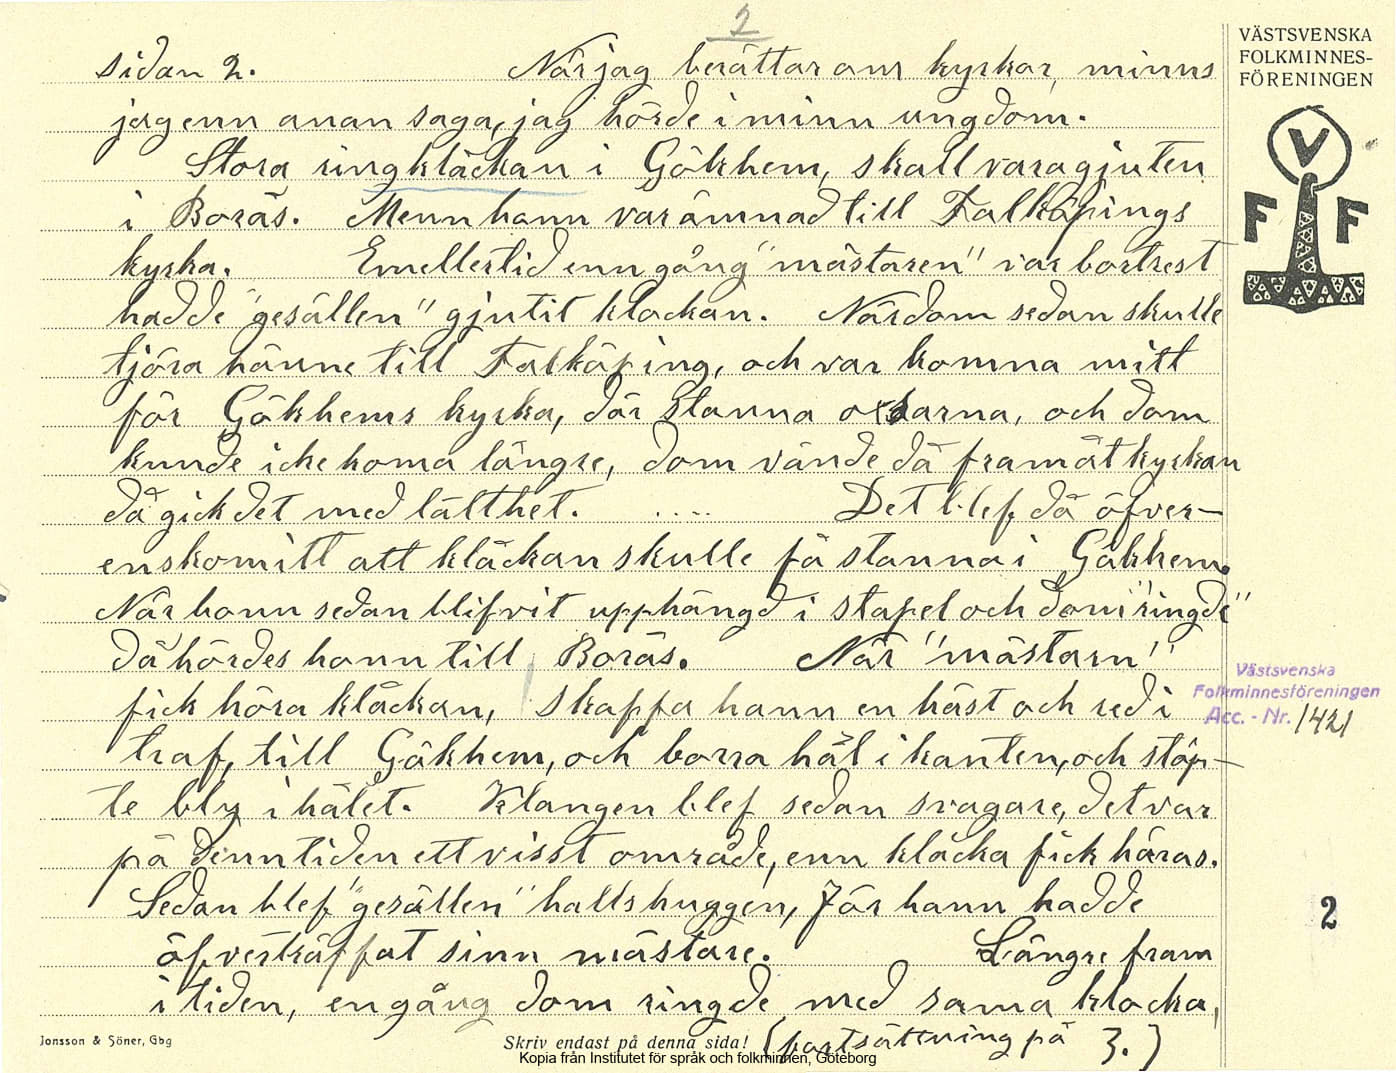 2
VÄSTSVENSKA
FOLKMINNES-
FÖRENINGEN
V
F F
sidan 2. När jag berättar om kyrkor, minns
jag enn anan saga, jag hörde i minn ungdom.
Stora ringkläckan i Gökhem, skall vara gjuten
i Borås. Menn hann var ämnad till Falköpings
kyrka. Emellertid enn gång "mästaren" var bortrest
hadde "gesällen" gjutit klockan. När dom sedan skulle
tjöra hänne till Falköping, och var komna mitt
för Gökhems kyrka, där stanna oxarna, och dom
kunde icke koma längre, dom vände då framåt kyrkan
då gick det med lätthet. .... Det blef då öfver-
enskomitt att kläckan skulle få stanna i Gökhem.
När hann sedan blifvit upphängd i stapel och dom "ringde"
då hördes hann till Borås. När "mästarn"
fick höra kläckan, skaffa hann en häst och red i
traf, till Gökhem, och borra hål i kanten, och stöp-
te bly i hålet. Klangen blef sedan svagare, det var
på denn tiden ett visst område, enn kläcka fick höras.
Sedan blef "gesällen" halshuggen, för hann hadde
öfverträffat sinn mästare. Längre fram
i tiden, en gång dom ringde med sama klocka,
(fortsättning på 3.)
Västsvenska
Folkminnesföreningen
Acc. - Nr. 1421
2
Jonsson & Söner, Gbg
Skriv endast på denna sida!
Kopia från Institutet för språk och folkminnen, Göteborg